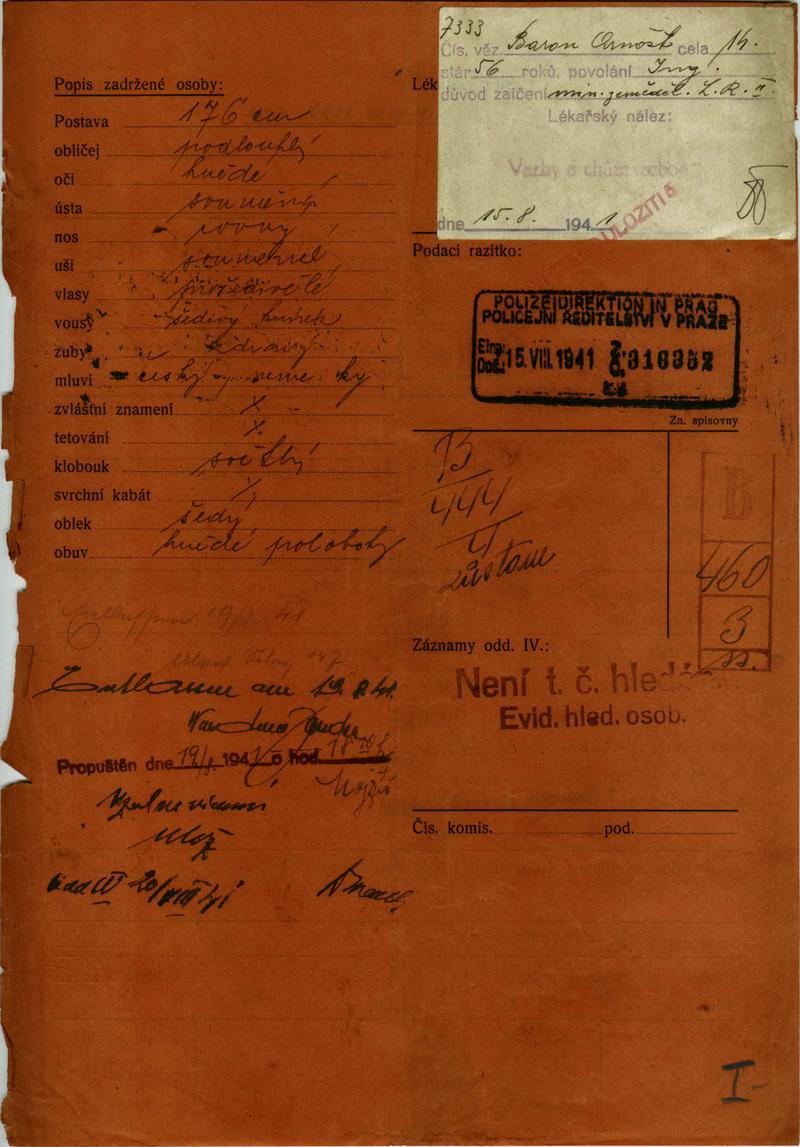 Popis zadržené osoby:
Postava 176 cm
obličej podlouhlý
oči hnědé
ústa souměrná
nos rovný
uši souměrné
vlasy prošedivělé
vousy šedivý knírek
zuby zdravý
mluví česky německy
zvláštní znamení X
tetování X
klobouk světlý
svrchní kabát
oblek šedý
obuv hnědé polobotky
19/8 41
Entlassen am 19.8.41.
Propuštěn dne 19/8 1941 o hod. 18
odd IV 20/VIII 41
7333
Čís. věz. Baron Arnošt cela 14.
stár 56 roků, povolání Ing.
důvod zatčení min. zeměděl. L. R. II.
Lékařský nález:
Vazby a chůze schopen
dne 15.8. 1941
ULOŽITI
Lék
Podací razítko:
POLIZEIDIREKTION IN PRAG
POLICEJNÍ ŘEDITELSTVÍ V PRAZE
Eing.
Doš. 15. VIII. 1941 316352
Zn. spisovny
B
444
zůstane
B
460
3
Záznamy odd. IV.:
Není t. č. hledán
Evid. hled. osob.
Čís. komis. pod.
I-